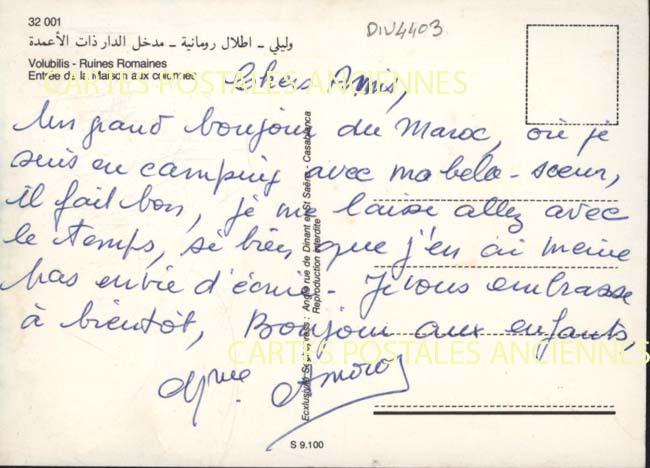 32 001
DIV4403
وليلي - اطلال رومانية - مدخل الدار ذات الأعمدة
Volubilis - Ruines Romaines
Entrée de la Maison aux colonnes
CARTES POSTALES ANCIENNES
Chers Amis,
Un grand bonjour du Maroc, où je
suis en camping avec ma belle-soeur,
il fait bon, je me laisse allez avec
le temps, si bien que j'en ai meme
pas envie d'écrire - Je vous embrasse
à bientôt, Bonjour aux enfants,
CARTES POSTALES ANCIENNES
Mme
Angle rue de Dinant et St Saëns - Casablanca
Reproduction interdite
S 9.100